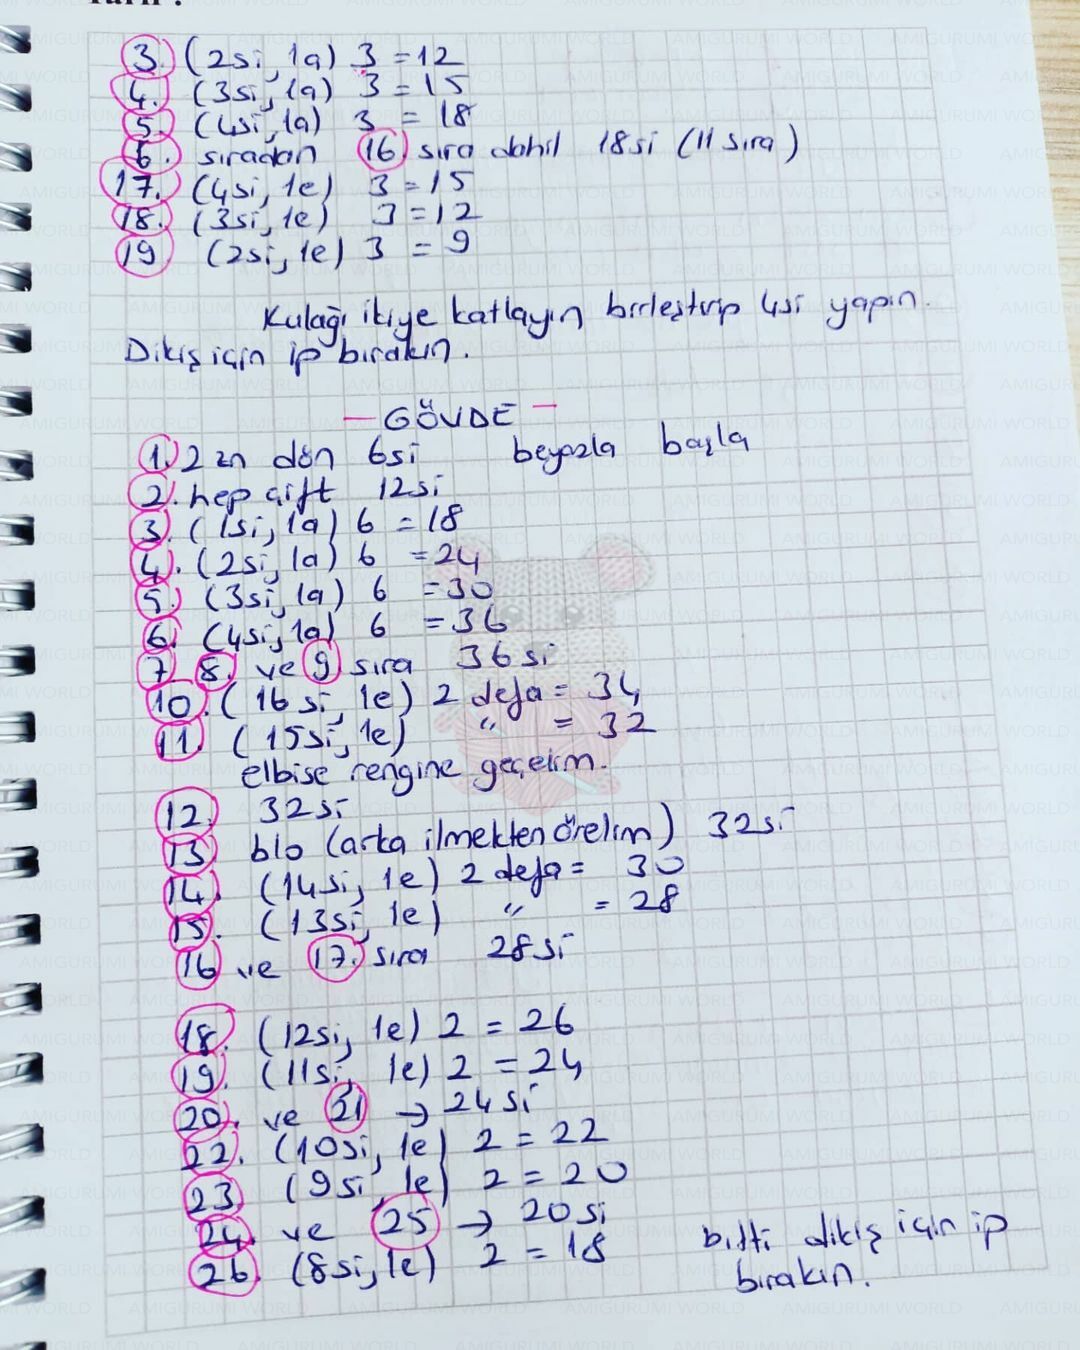 3. (2si, 1a) 3 = 12
4. (3si, 1a) 3 = 15
5. (4si, 1a) 3 = 18
6. sıradan 16. sıra dahil 18si (11 sıra)
17. (4si, 1e) 3 = 15
18. (3si, 1e) 3 = 12
19 (2si, 1e) 3 = 9
Kulağı ikiye katlayın birleştirip 4si yapın.
Dikiş için ip bırakın.
— GÖVDE —
1. 2 zn dön 6si beyazla başla
2. hep çift 12si
3. (1si, 1a) 6 = 18
4. (2si, 1a) 6 = 24
5. (3si, 1a) 6 = 30
6. (4si, 1a) 6 = 36
7 8. ve 9 sıra 36si
10. (16si, 1e) 2 defa = 34
11. (15si, 1e) " = 32
elbise rengine geçelim.
12. 32si
13 blo (arka ilmekten örelim) 32si
14. (14si, 1e) 2 defa = 30
15. (13si, 1e) " = 28
16 ve 17. sıra 28si
18. (12si, 1e) 2 = 26
19. (11si, 1e) 2 = 24
20. ve 21 → 24si
22. (10si, 1e) 2 = 22
23 (9si, 1e) 2 = 20
24. ve 25 → 20si
26. (8si, 1e) 2 = 18 bitti dikiş için ip
bırakın.
AMIGURUMI WORLD